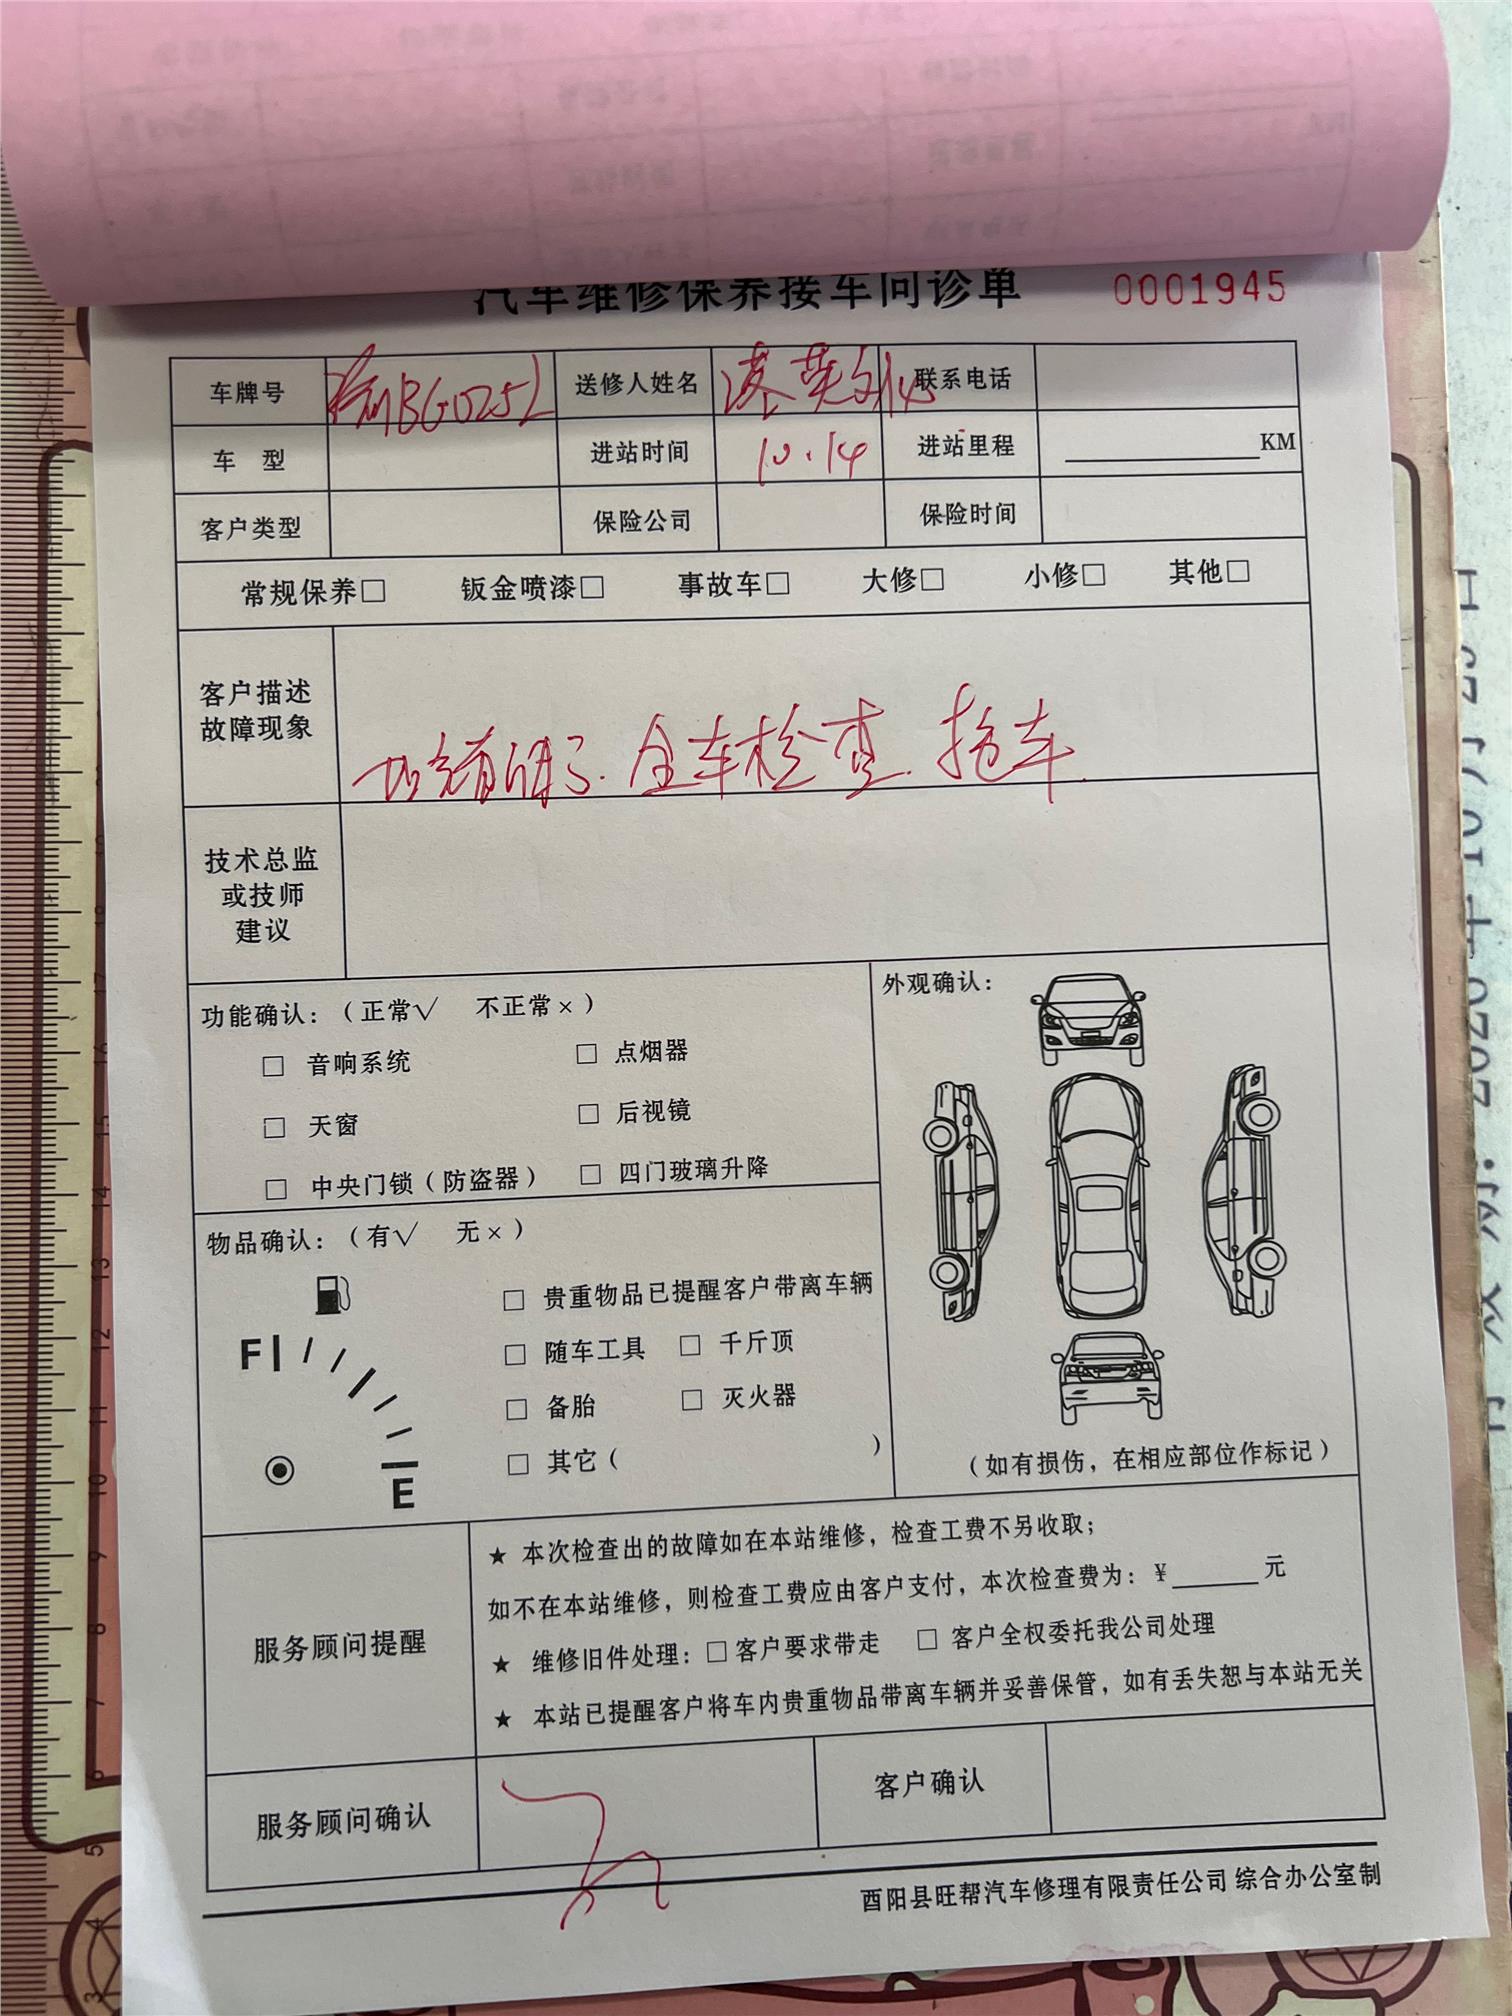 汽车维修保养接车问诊单 0001945
车牌号 送修人姓名 联系电话
车 型 进站时间 10.14 进站里程 KM
客户类型 保险公司 保险时间
常规保养□ 钣金喷漆□ 事故车□ 大修□ 小修□ 其他□
客户描述
故障现象
全车检查.
技术总监
或技师
建议
功能确认：（正常√ 不正常×）
□ 音响系统 □ 点烟器
□ 天窗 □ 后视镜
□ 中央门锁（防盗器） □ 四门玻璃升降
外观确认：
（如有损伤，在相应部位作标记）
物品确认：（有√ 无×）
□ 贵重物品已提醒客户带离车辆
□ 随车工具 □ 千斤顶
□ 备胎 □ 灭火器
□ 其它（ ）
F
E
服务顾问提醒
★ 本次检查出的故障如在本站维修，检查工费不另收取；
如不在本站维修，则检查工费应由客户支付，本次检查费为：￥______元
★ 维修旧件处理：□客户要求带走 □ 客户全权委托我公司处理
★ 本站已提醒客户将车内贵重物品带离车辆并妥善保管，如有丢失恕与本站无关
服务顾问确认 客户确认
酉阳县旺帮汽车修理有限责任公司 综合办公室制